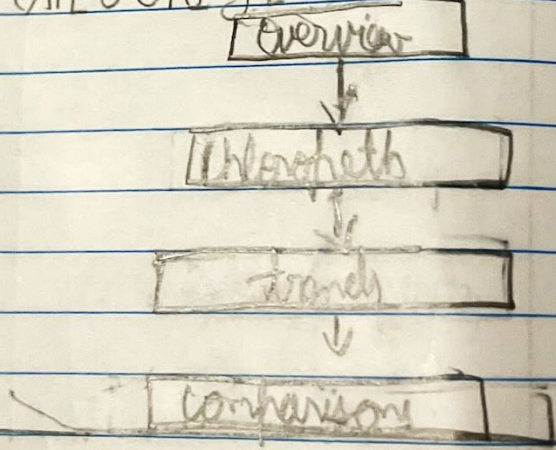 Overview
Chloropeth
trends
comparisons